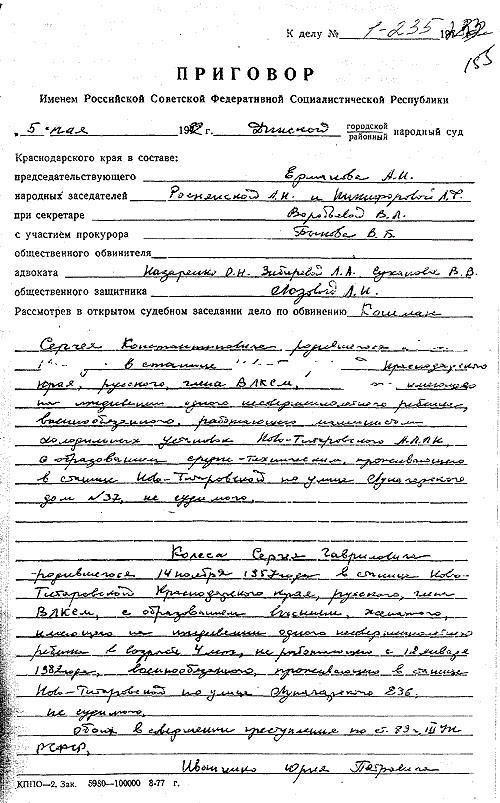 К делу № 1-235 19
155
ПРИГОВОР
Именем Российской Советской Федеративной Социалистической Республики
„5" мая 1982 г. Динской городской районный народный суд
Краснодарского края в составе:
председательствующего А.И.
народных заседателей А.Н. и Никифоровой
при секретаре Воробьевой В.Л.
с участием прокурора Быкова В.Б.
общественного обвинителя
адвоката Назаренко О.Н. Л.А. Суханова В.В.
общественного защитника Лозовой Л.И.
Рассмотрев в открытом судебном заседании дело по обвинению Кошман
Сергея Константиновича родившегося
в станице Краснодарского
края, русского, члена ВЛКСМ, имеющего
на иждивении одного несовершеннолетнего ребенка,
военнообязанного, работающего машинистом
холодильных установок Ново-Титаровского
с образованием средне-техническим, проживающего
в станице Ново-Титаровской по улице Луначарского
дом № 37, не судимого,
Колеса Сергея Гавриловича
родившегося 14 ноября 1957 года в станице Ново-
Титаровской Краснодарского края, русского, член
ВЛКСМ, с образованием высшим, женатого,
имеющего на иждивении одного несовершеннолетнего
ребенка в возрасте 4 мес, не работающего с 18 января
1982 года, военнообязанного, проживающего в станице
Ново-Титаровской по улице Луначарского 236.
не судимого,
обоих в совершении преступления по ст. 89 ч. III УК
РСФСР,
Иващенко Юрия Петровича
КППО—2. Зак. 5980—100000 8-77 г.